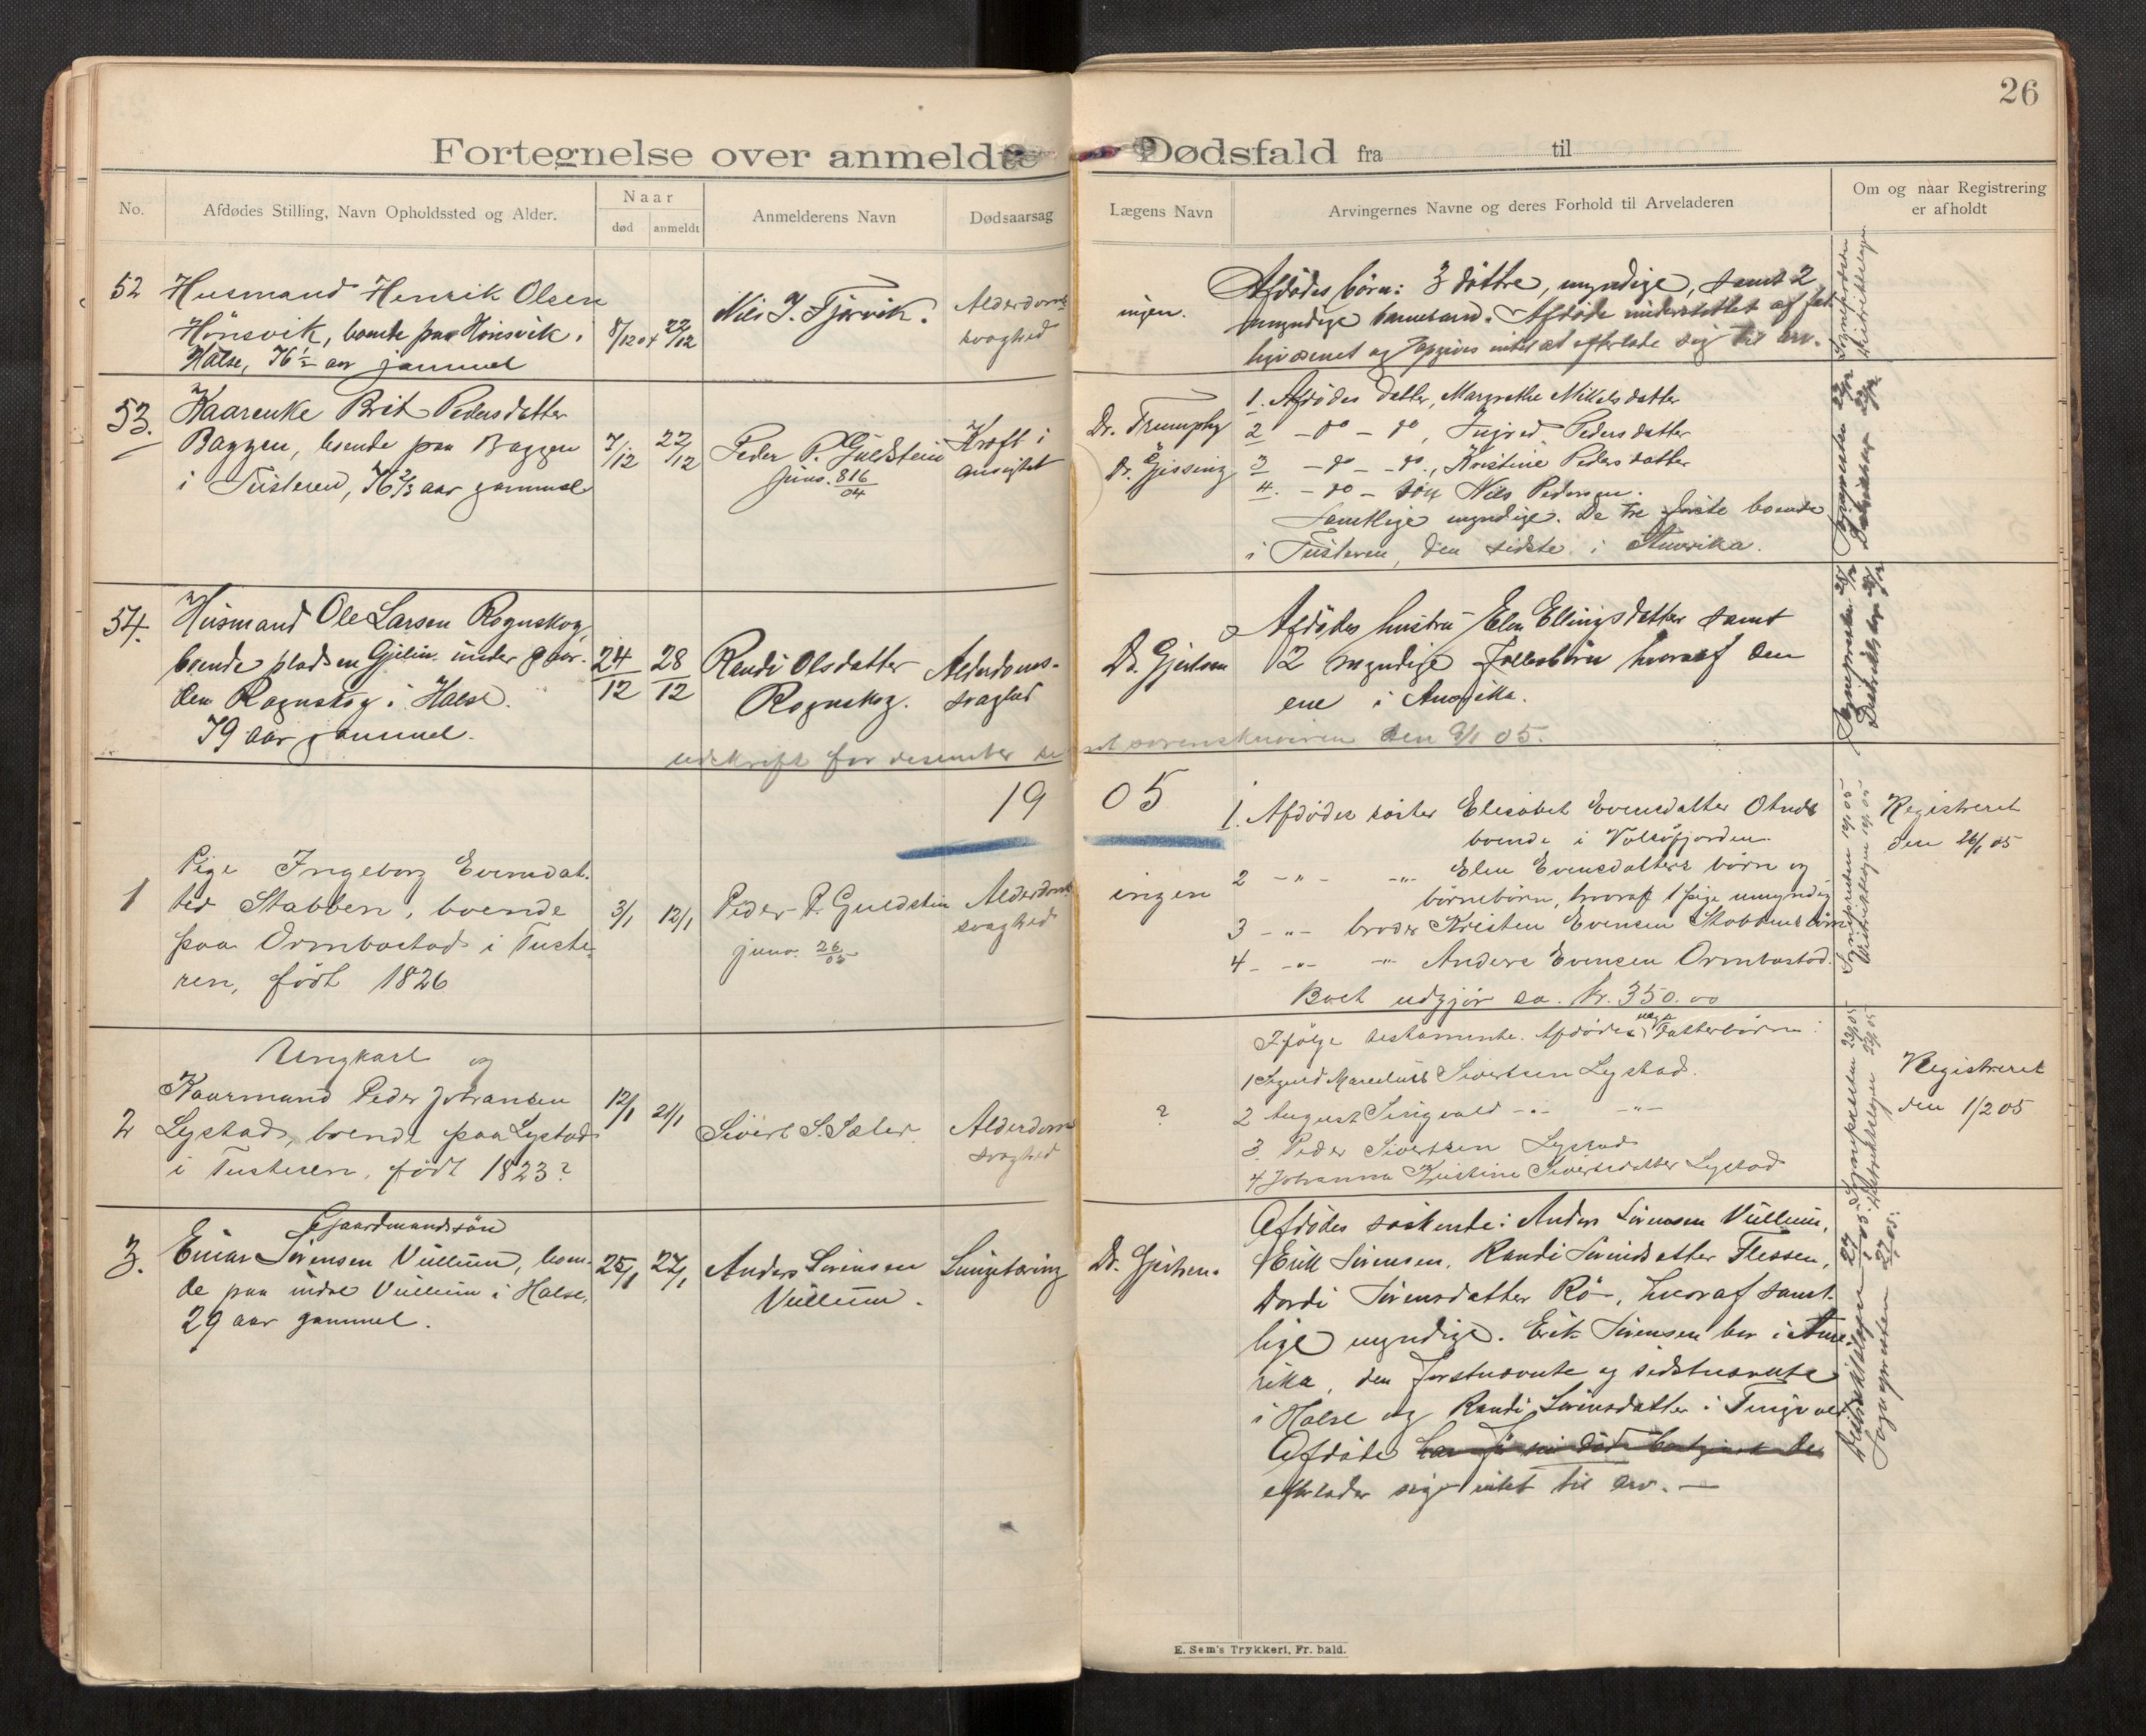 26
Fortegnelse over anmeldte Dødsfald fra til
No.
Afdødes Stilling, Navn Opholdssted og Alder.
Naar
død
anmeldt
Anmelderens Navn
Dødsaarsag
Lægens Navn
Arvingernes Navne og deres Forhold til Arveladeren
Om og naar Registrering
er afholdt
52
Husmand Henrik Olsen
Hönsvik, boende paa Hönsvik i
Halse, 76½ aar gammel
8/12 04
22/12
Nils J. Fjörvik.
Alderdoms
svaghed
ingen.
Afdödes börn: 3 döttre, myndige, samt 2
umyndige barnebarn. Afdöde understöttet af fat
tigvæsenet og opgives intet at efterlade sig til arv.
Sognepresten 22/12
Distriktslægen 22/12
53.
Kaarenke Brit Pedersdatter
Baggen, boende paa Baggen
i Tusteren, 76 2/3 aar gammel
7/12
22/12
Peder P. Guldstein
juns. 816/04
Kræft i
ansigtet
Dr.
Dr. Gjissing
1. Afdödes datter, Margrethe Mikkelsdatter
2 - do - do, Ingred Pedersdatter
3 - do - do, Kristine Pedersdatter
4. - do - sön Nils Pedersen.
Samtlige myndige. De tre förste boende
i Tusteren, den sidste i Amerika.
54.
Husmand Ole Larsen Rognskog,
boende pladsen Gjelin under gaar-
den Rognskog i Halse.
79 aar gammel.
24/12
28/12
Randi Olsdatter
Rognskog.
Alderdoms-
svaghed
Dr. Gjertsen
Afdödes hustru Elen Ellingsdatter samt
2 myndige fællesbörn hvoraf den
ene i Amerika.
Sognepresten 28/12
Distriktslæge 28/12
udskrift for desember sendt sorenskriveren den 9/1 05.
1905
1
Pige Ingeborg Evensdat-
ter Stabben, boende
paa Ormbostad i Tuste-
ren, födt 1826
3/1
12/1
Peder P. Guldstein
junr. 26/05
Alderdoms
svaghed
ingen
1. Afdödes söster Elisabet Evensdatter Otnes
boende i Valsöfjorden
2 - " - - " - Elen Evensdatters börn og
börnebörn, hvoraf 1 pige umyndig
3 - " - broder Kristen Evensen Stabbens börn
4 - " - - " - Anders Evensen Ormbostad.
Boet udgjör ca. kr. 350.00
Registreret
den 26/1 05
2
Ungkarl og
Kaarmand Peder Johansen
Lystad, boende paa Lystad
i Tusteren, födt 1823?
12/1
21/1
Sivert S. Sæter
Alderdoms
svaghed
?
Ifölge testamente. Afdödes Datterbörn:
1 Sigurd Marcelius Sivertsen Lystad.
2 August Singvald - " - - " -
3. Peder Sivertsen Lystad
4 Johanna Kristine Sivertsdatter Lystad
Registreret
den 1/2 05
3.
Gaardmandssön
Einar Sörensen Vullum, boen-
de paa indre Vullum i Halse,
29 aar gammel.
25/1
27/1
Anders Sörensen
Vullum.
Lungetæring
Dr. Gjertsen.
Afdödes söskende: Anders Sörensen Vullum,
Erik Sörensen, Randi Sörensdatter Flessen,
Dordi Sörensdatter Rö, hvoraf samt-
lige myndige. Erik Sörensen bor i Ame-
rika, den förstnævnte og sidstnævnte
i Halse og Randi Sörensdatter i Tingvol
Afdöde
efterlader sig intet til arv. —
Distriktslægen 27/1 05.
Sognepresten 27/1 05.
E. Sem's Trykkeri, Fr. hald.